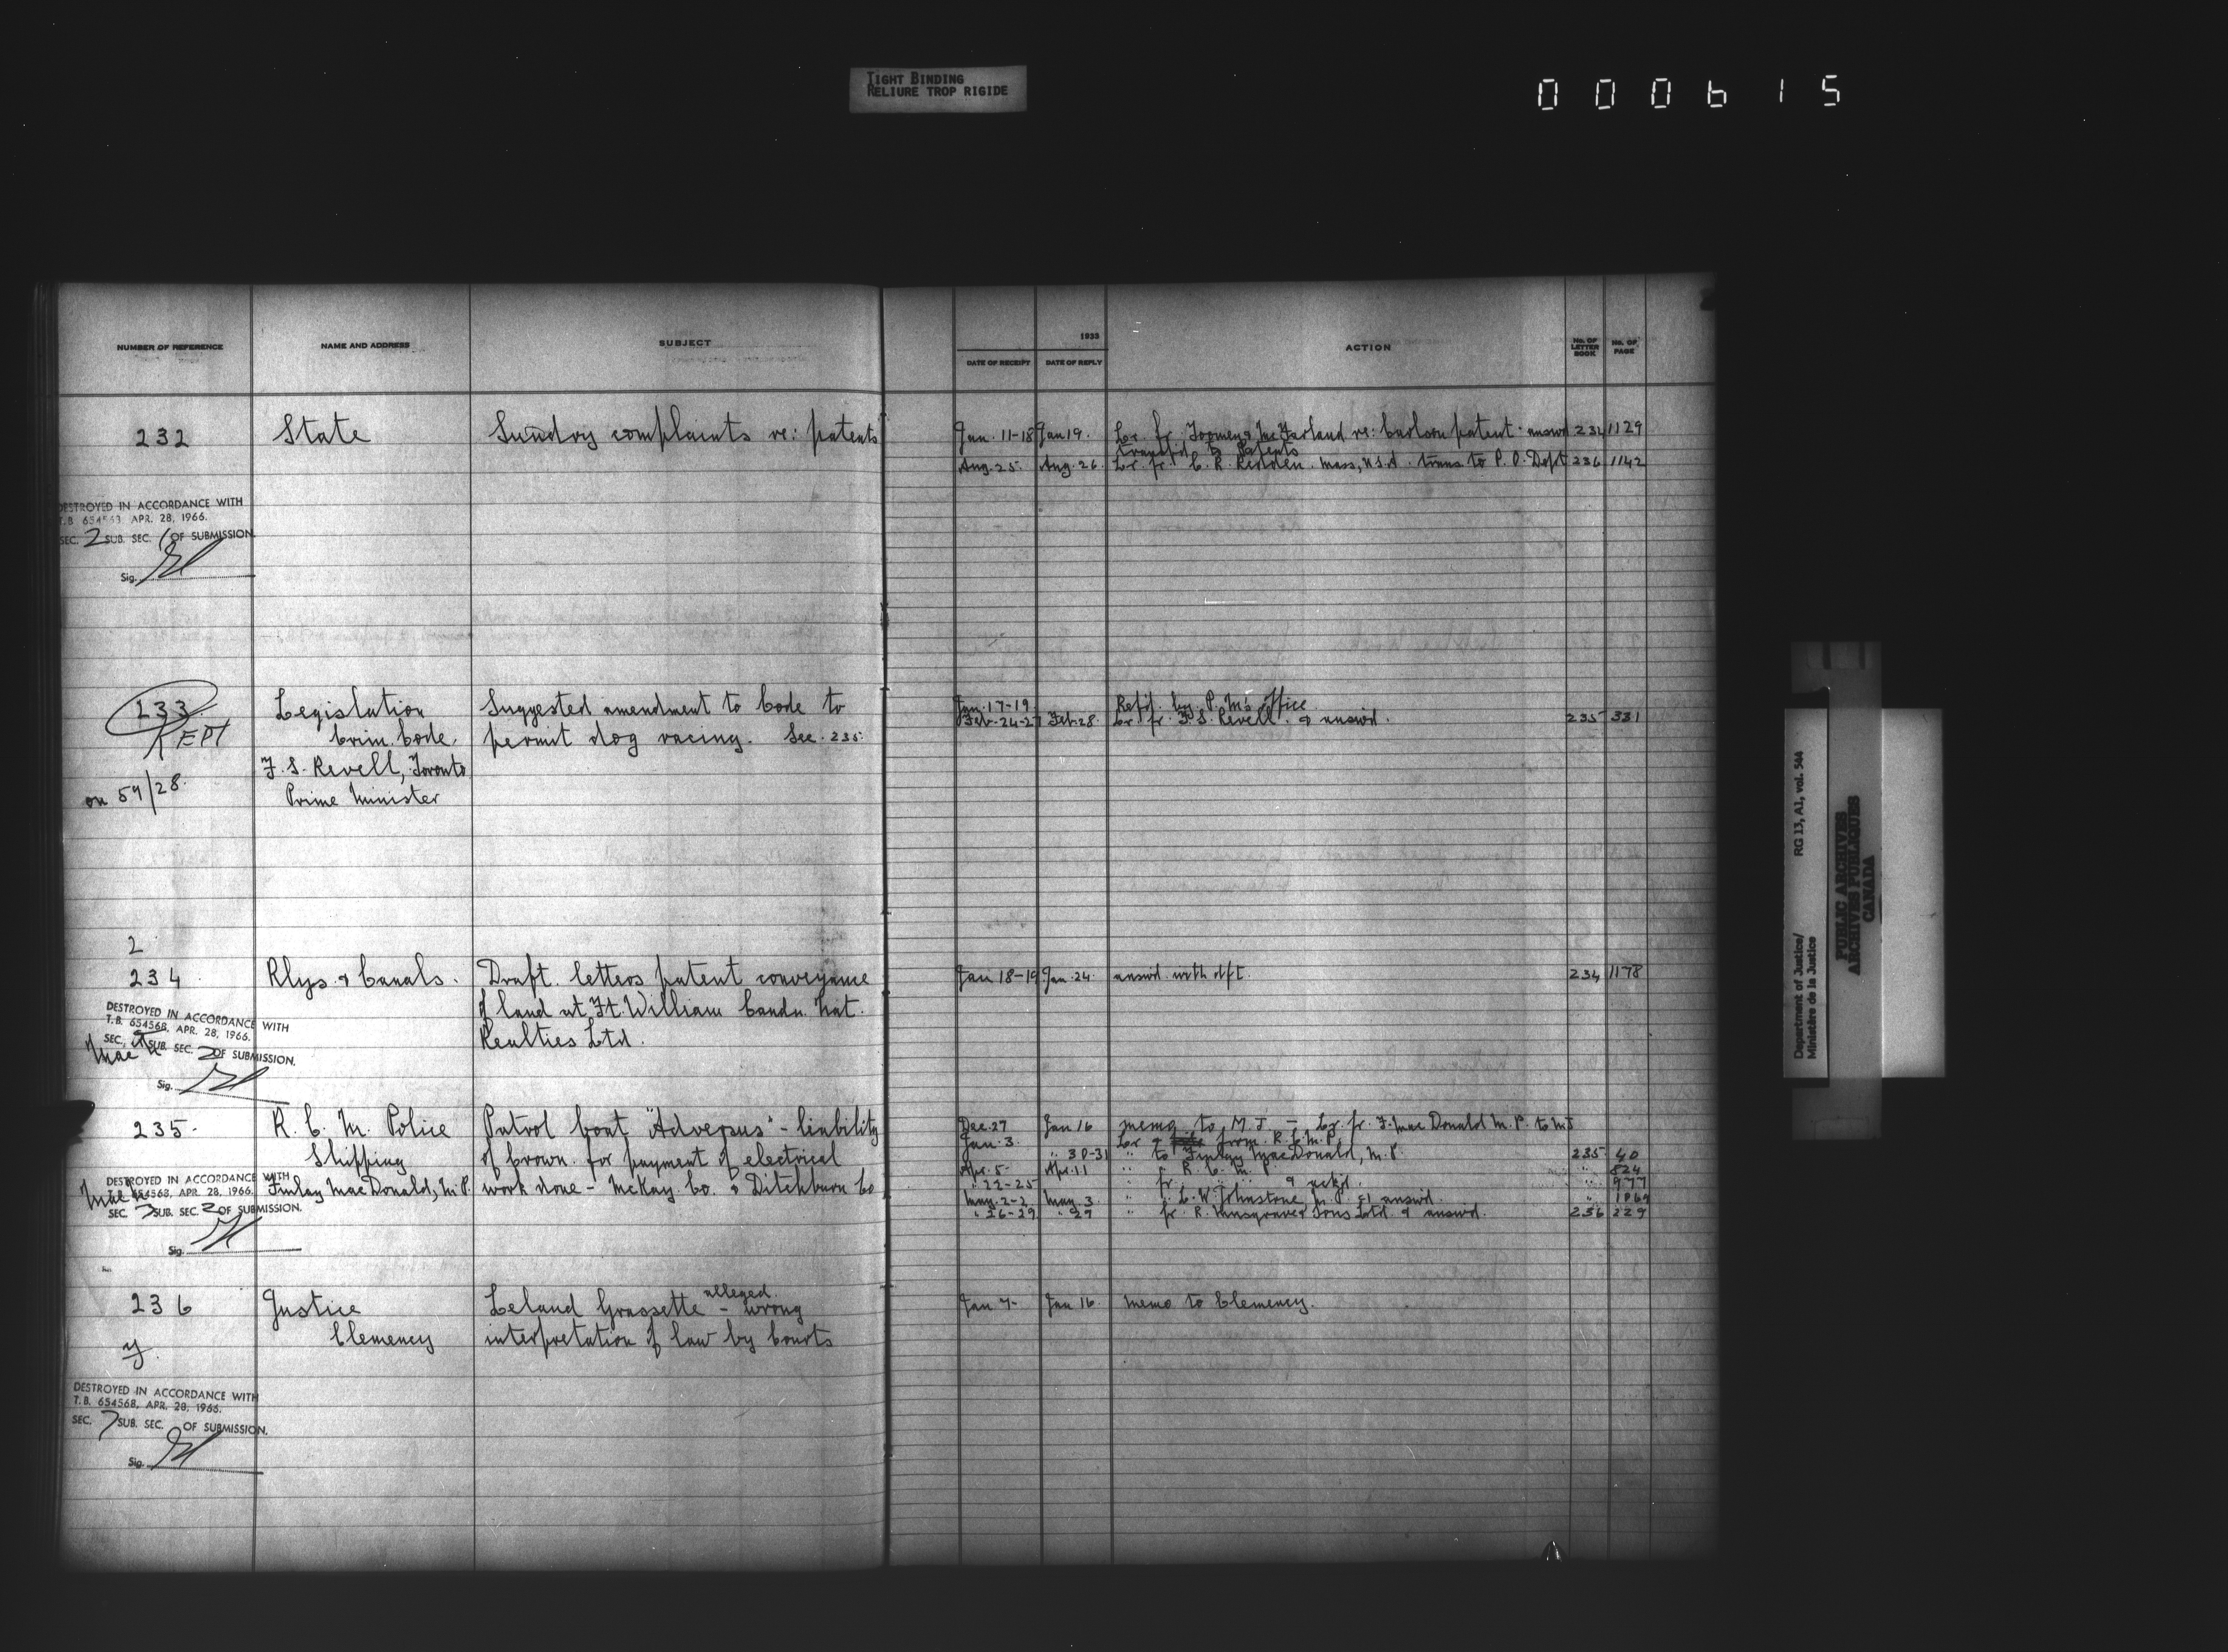 TIGHT BINDING
RELIURE TROP RIGIDE
000615
NUMBER OF REFERENCE NAME AND ADDRESS SUBJECT
1933
DATE OF RECEIPT DATE OF REPLY ACTION No. OF LETTER BOOK No. OF PAGE
232 State Sundry complaints re: patents
Jan. 11-18 Jan 19. Lr. fr. Toomey & McFarland re: Carlson patent - answd 234 1129
transf'd to Patents
Aug. 25. Aug. 26. Lr. fr. C. R. Redden. Mass, U.S.A. trans to P. O. Dept 236 1142
DESTROYED IN ACCORDANCE WITH
T.B. 654568 APR. 28, 1966.
SEC. 2 SUB. SEC. 1 OF SUBMISSION
Sig.
233. Legislation Suggested amendment to Code to
KEPT Crim. Code. permit dog racing. Sec. 235.
F. S. Revell, Toronto
on 59/28. Prime Minister
Jan. 17-19. Refd. by P. M's Office
Feb. 24-27 Feb. 28. Lr. fr. F. S. Revell. & answd. 235 331
2
234 Rlys. & Canals. Draft letters patent conveyance
of land at Ft. William Candn. Nat.
Realties Ltd.
Jan 18-19 Jan. 24. answd. with dft. 234 1178
DESTROYED IN ACCORDANCE WITH
T.B. 654568, APR. 28, 1966.
SEC. SUB. SEC. 2 OF SUBMISSION.
Sig.
235. R. C. M. Police Patrol boat "Adversus" - liability
Shipping of Crown for payment of electrical
Finlay MacDonald, M.P. work done - McKay Co. & Ditchburn Co
DESTROYED IN ACCORDANCE WITH
T.B. 654568, APR. 28, 1966.
SEC. 7 SUB. SEC. 2 OF SUBMISSION.
Sig.
Dec. 27 Jan 16 memo to M. J. - Lr. fr. F. MacDonald M. P. to MJ
Jan. 3. Lr & from R. C. M. P.
" 30-31 " to Finlay MacDonald, M. P. 235 40
Apr. 5- Apr. 11 " fr R. C. M. P. " 824
" 22-25 " fr. " " & ackd. " 977
May. 2-2 May. 3 " " L. W. Johnstone M. P. & answd. " 1069
" 26-29 " 29 " fr. R. Musgrave & Sons Ltd. & answd. 236 229
236 Justice Leland Grassette - alleged wrong
Clemency interpretation of law by Courts
y.
Jan 7- Jan 16. Memo to Clemency.
DESTROYED IN ACCORDANCE WITH
T.B. 654568, APR. 28, 1966.
SEC. 7 SUB. SEC. OF SUBMISSION.
Sig.
Department of Justice/ RG 13, A1, vol. 544
Ministère de la Justice
PUBLIC ARCHIVES
ARCHIVES PUBLIQUES
CANADA